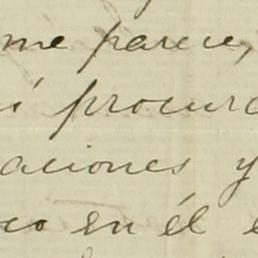 me parece,
í procura
aciones y
co en él e